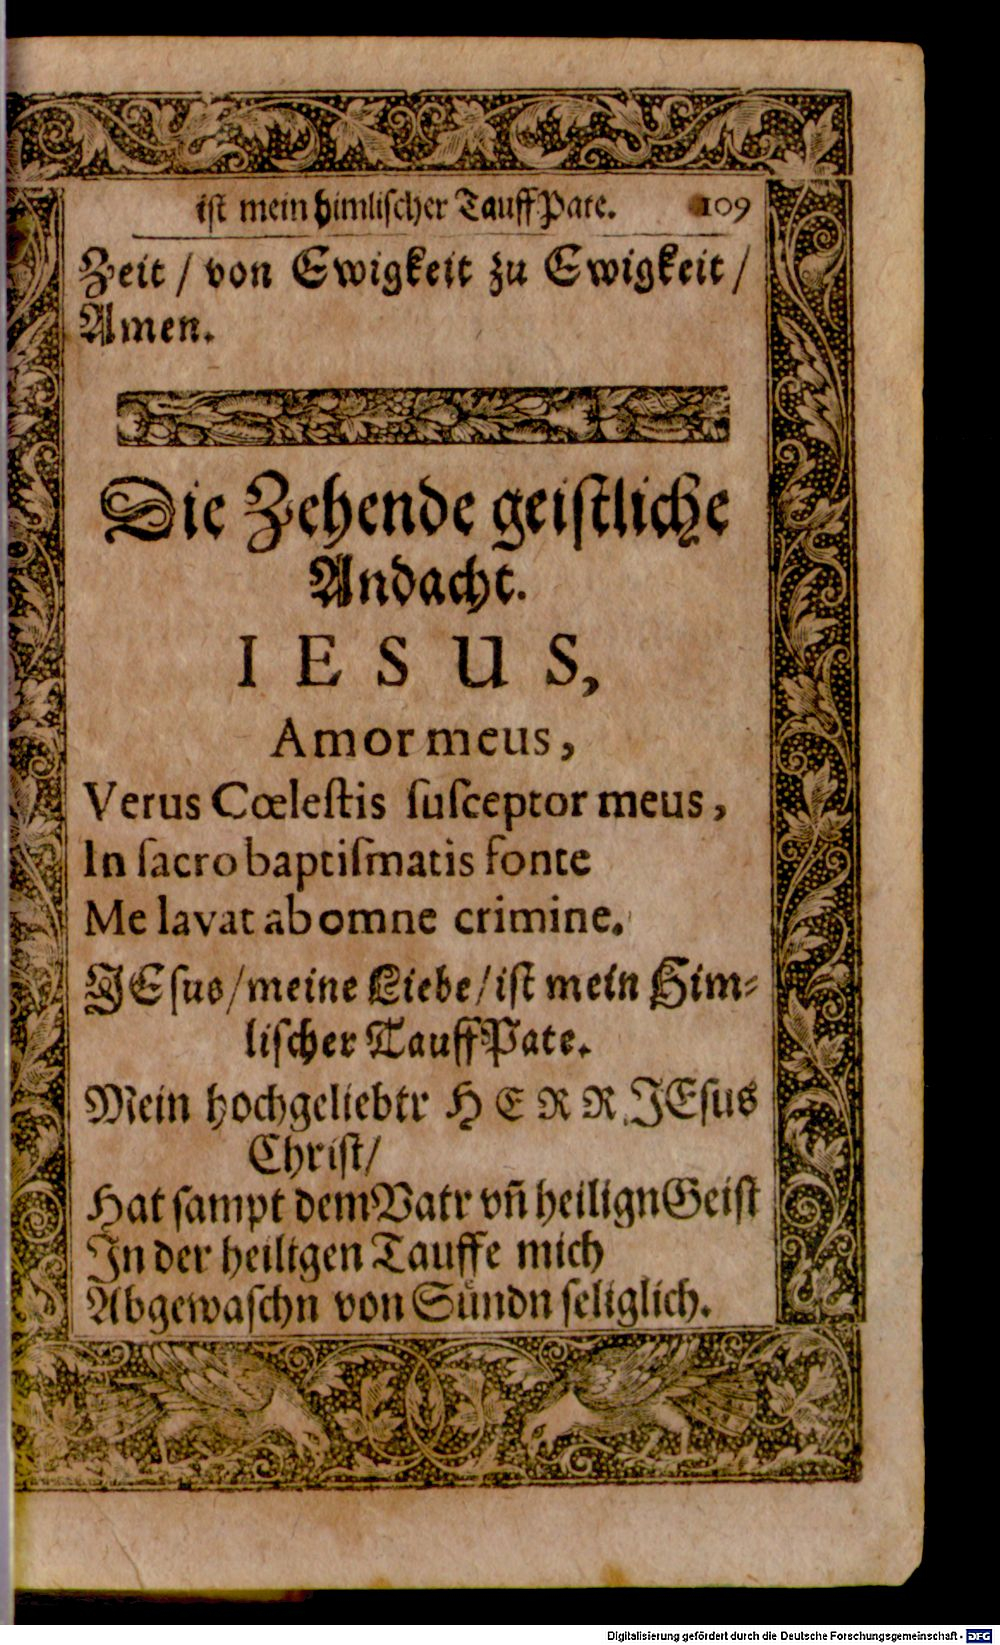 ist mein himlischer TauffPate. 109
Zeit / von Ewigkeit zu Ewigkeit /
Amen.
Die Zehende geistliche
Andacht.
IESUS,
Amor meus,
Verus Cœlestis susceptor meus,
In sacro baptismatis fonte
Me lavat ab omne crimine.
JEsus / meine Liebe / ist mein Him-
lischer TauffPate.
Mein hochgeliebtr HERR JEsus
Christ /
Hat sampt dem Vatr vñ heilign Geist
In der heiligen Tauffe mich
Abgewaschn von Suͤndn seliglich.
Digitalisierung gefördert durch die Deutsche Forschungsgemeinschaft - DFG